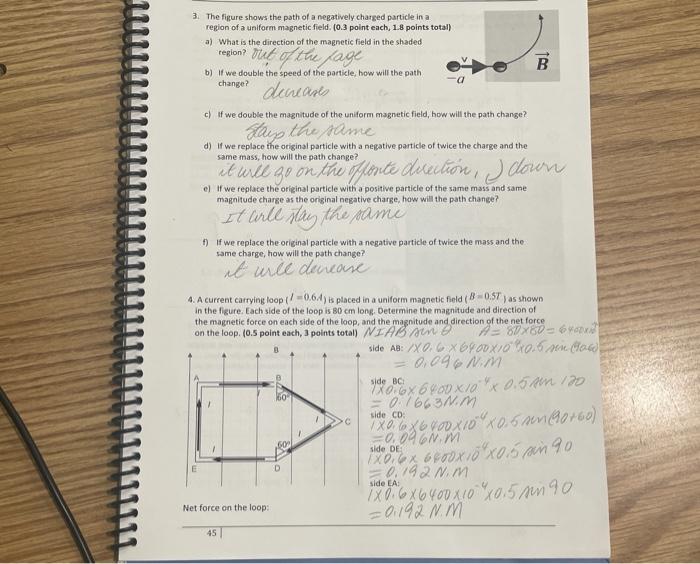 3. The figure shows the path of a negatively charged particle in a
region of a uniform magnetic field. (0.3 point each, 1.8 points total)
a) What is the direction of the magnetic field in the shaded
region? Out of the page
v
-q
B
b) If we double the speed of the particle, how will the path
change?
decreases
c) If we double the magnitude of the uniform magnetic field, how will the path change?
Stays the same
d) If we replace the original particle with a negative particle of twice the charge and the
same mass, how will the path change?
it will go on the opposite direction, down
e) If we replace the original particle with a positive particle of the same mass and same
magnitude charge as the original negative charge, how will the path change?
It will stay the same
f) If we replace the original particle with a negative particle of twice the mass and the
same charge, how will the path change?
it will decrease
4. A current carrying loop (I = 0.6A) is placed in a uniform magnetic field (B = 0.5T) as shown
in the figure. Each side of the loop is 80 cm long. Determine the magnitude and direction of
the magnetic force on each side of the loop, and the magnitude and direction of the net force
on the loop. (0.5 point each, 3 points total) NIAB sin θ A = 80×80 = 6400×10
B
side AB: 1×0.6×6400×10⁻⁴×0.5 sin
= 0.096 N.M
side BC:
1×0.6×6400×10⁻⁴×0.5 sin 120
= 0.1663 N.M
side CD:
1×0.6×6400×10⁻⁴×0.5 sin(90+60)
= 0.096 N.M
side DE:
1×0.6×6400×10⁻⁴×0.5 sin 90
= 0.192 N.M
side EA:
1×0.6×6400×10⁻⁴×0.5 sin 90
= 0.192 N.M
A
B
60°
I
I
I
C
60°
I
I
E
D
Net force on the loop:
45